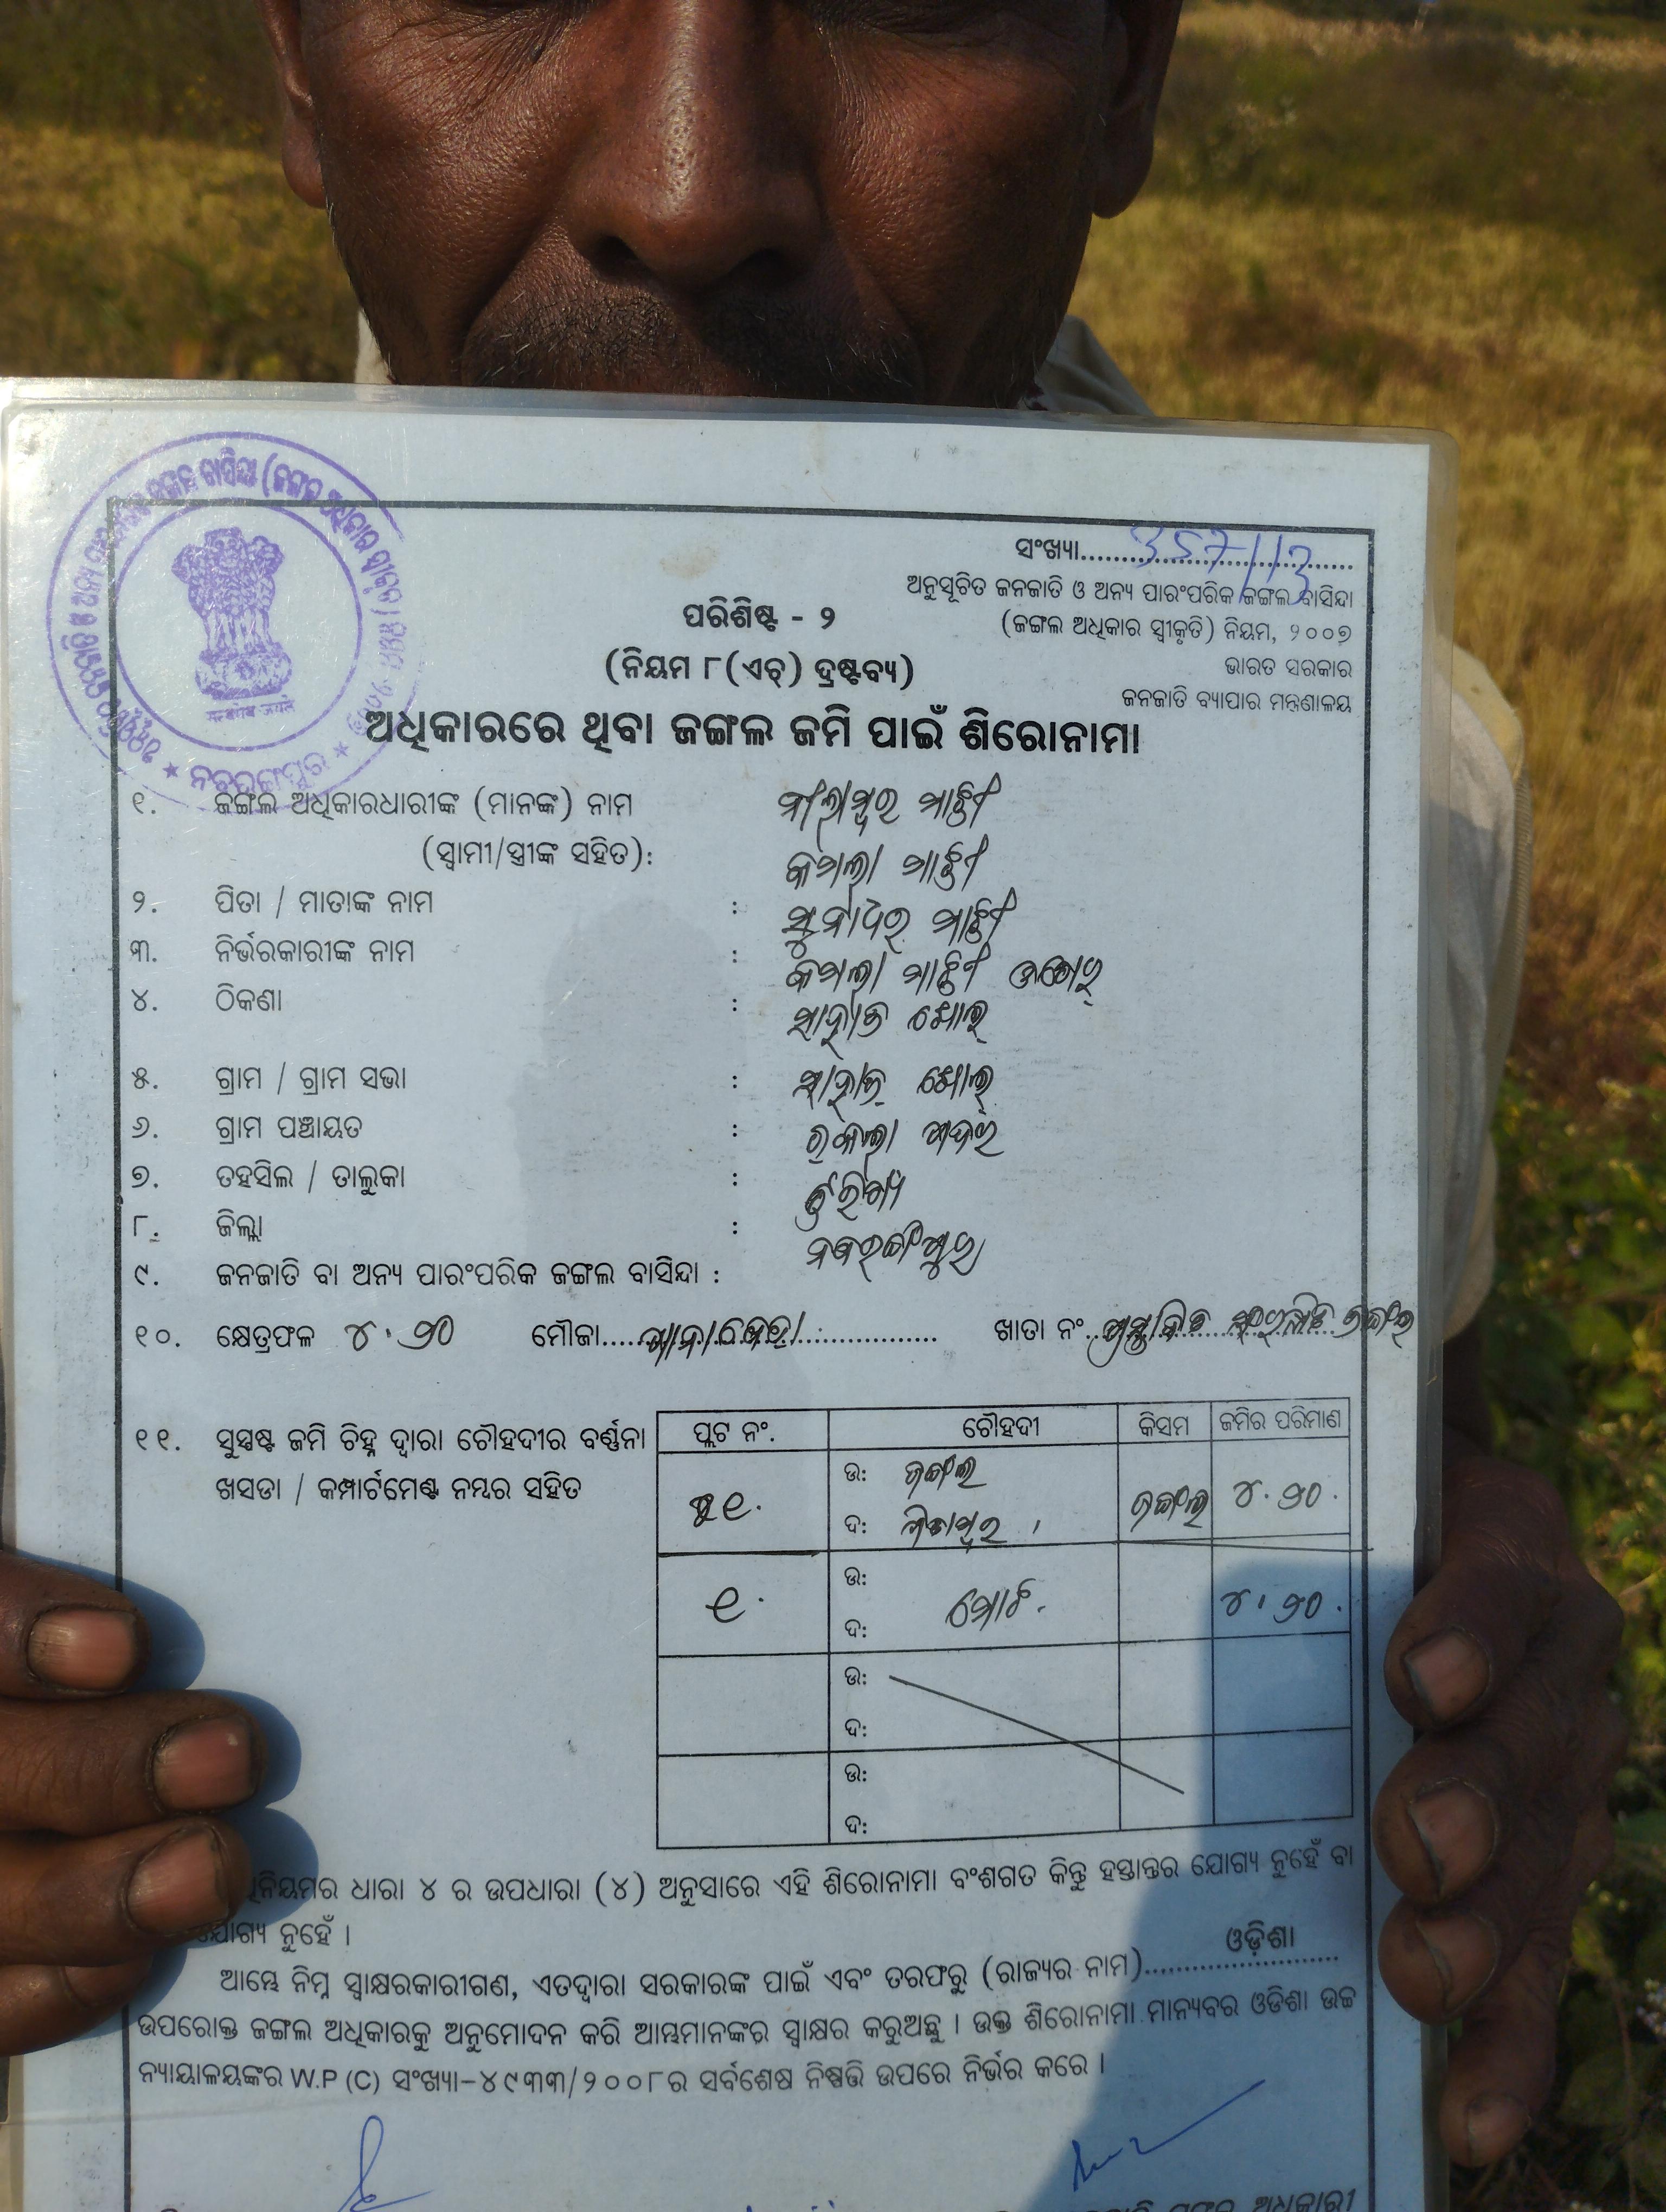 ସଂଖ୍ୟା.......357/13
ଅନୁସୂଚିତ ଜନଜାତି ଓ ଅନ୍ୟ ପାରଂପରିକ ଜଙ୍ଗଲ ବାସିନ୍ଦା
(ଜଙ୍ଗଲ ଅଧିକାର ସ୍ୱୀକୃତି) ନିୟମ, ୨୦୦୭
ଭାରତ ସରକାର
ଜନଜାତି ବ୍ୟାପାର ମନ୍ତ୍ରଣାଳୟ
ପରିଶିଷ୍ଟ - ୨
(ନିୟମ ୮(ଏଚ୍) ଦ୍ରଷ୍ଟବ୍ୟ)
ଅଧିକାରରେ ଥିବା ଜଙ୍ଗଲ ଜମି ପାଇଁ ଶିରୋନାମା
୧. ଜଙ୍ଗଲ ଅଧିକାରଧାରୀଙ୍କ (ମାନଙ୍କ) ନାମ ନୀଳାମ୍ବର ମାଝୀ
(ସ୍ୱାମୀ/ସ୍ତ୍ରୀଙ୍କ ସହିତ): କମଳା ମାଝୀ
୨. ପିତା / ମାତାଙ୍କ ନାମ : ସୁନାଧର ମାଝୀ
୩. ନିର୍ଭରକାରୀଙ୍କ ନାମ : କମଳା ମାଝୀ
୪. ଠିକଣା :
୫. ଗ୍ରାମ / ଗ୍ରାମ ସଭା :
୬. ଗ୍ରାମ ପଞ୍ଚାୟତ :
୭. ତହସିଲ / ତାଲୁକା :
୮. ଜିଲ୍ଲା : ନବରଙ୍ଗପୁର
୯. ଜନଜାତି ବା ଅନ୍ୟ ପାରଂପରିକ ଜଙ୍ଗଲ ବାସିନ୍ଦା :
୧୦. କ୍ଷେତ୍ରଫଳ ୪.୨୦ ମୌଜା....... ଖାତା ନଂ.. ପ୍ରସ୍ତାବିତ ସଂରକ୍ଷିତ ଜଙ୍ଗଲ
୧୧. ସୁସ୍ପଷ୍ଟ ଜମି ଚିହ୍ନ ଦ୍ୱାରା ଚୌହଦୀର ବର୍ଣ୍ଣନା
ଖସଡା / କମ୍ପାର୍ଟମେଣ୍ଟ ନମ୍ବର ସହିତ
ପ୍ଲଟ ନଂ. ଚୌହଦୀ କିସମ ଜମିର ପରିମାଣ
ଉ: ଜଙ୍ଗଲ
ଜଙ୍ଗଲ ୪.୨୦.
ଦ: ପିତାମ୍ବର
ଉ:
୧. ମୋଟ. ୪.୨୦.
ଦ:
ଉ:
ଦ:
ଉ:
ଦ:
ଧାରା ୪ ର ଉପଧାରା (୪) ଅନୁସାରେ ଏହି ଶିରୋନାମା ବଂଶଗତ କିନ୍ତୁ ହସ୍ତାନ୍ତର ଯୋଗ୍ୟ ନୁହେଁ ବା
ଯୋଗ୍ୟ ନୁହେଁ ।
ଆମ୍ଭେ ନିମ୍ନ ସ୍ୱାକ୍ଷରକାରୀଗଣ, ଏତଦ୍ୱାରା ସରକାରଙ୍କ ପାଇଁ ଏବଂ ତରଫରୁ (ରାଜ୍ୟର ନାମ).....ଓଡ଼ିଶା.....
ଉପରୋକ୍ତ ଜଙ୍ଗଲ ଅଧିକାରକୁ ଅନୁମୋଦନ କରି ଆମ୍ଭମାନଙ୍କର ସ୍ୱାକ୍ଷର କରୁଅଛୁ । ଉକ୍ତ ଶିରୋନାମା ମାନ୍ୟବର ଓଡିଶା ଉଚ୍ଚ
ନ୍ୟାୟାଳୟଙ୍କର W.P (C) ସଂଖ୍ୟା-୪୯୩୩/୨୦୦୮ର ସର୍ବଶେଷ ନିଷ୍ପତ୍ତି ଉପରେ ନିର୍ଭର କରେ ।